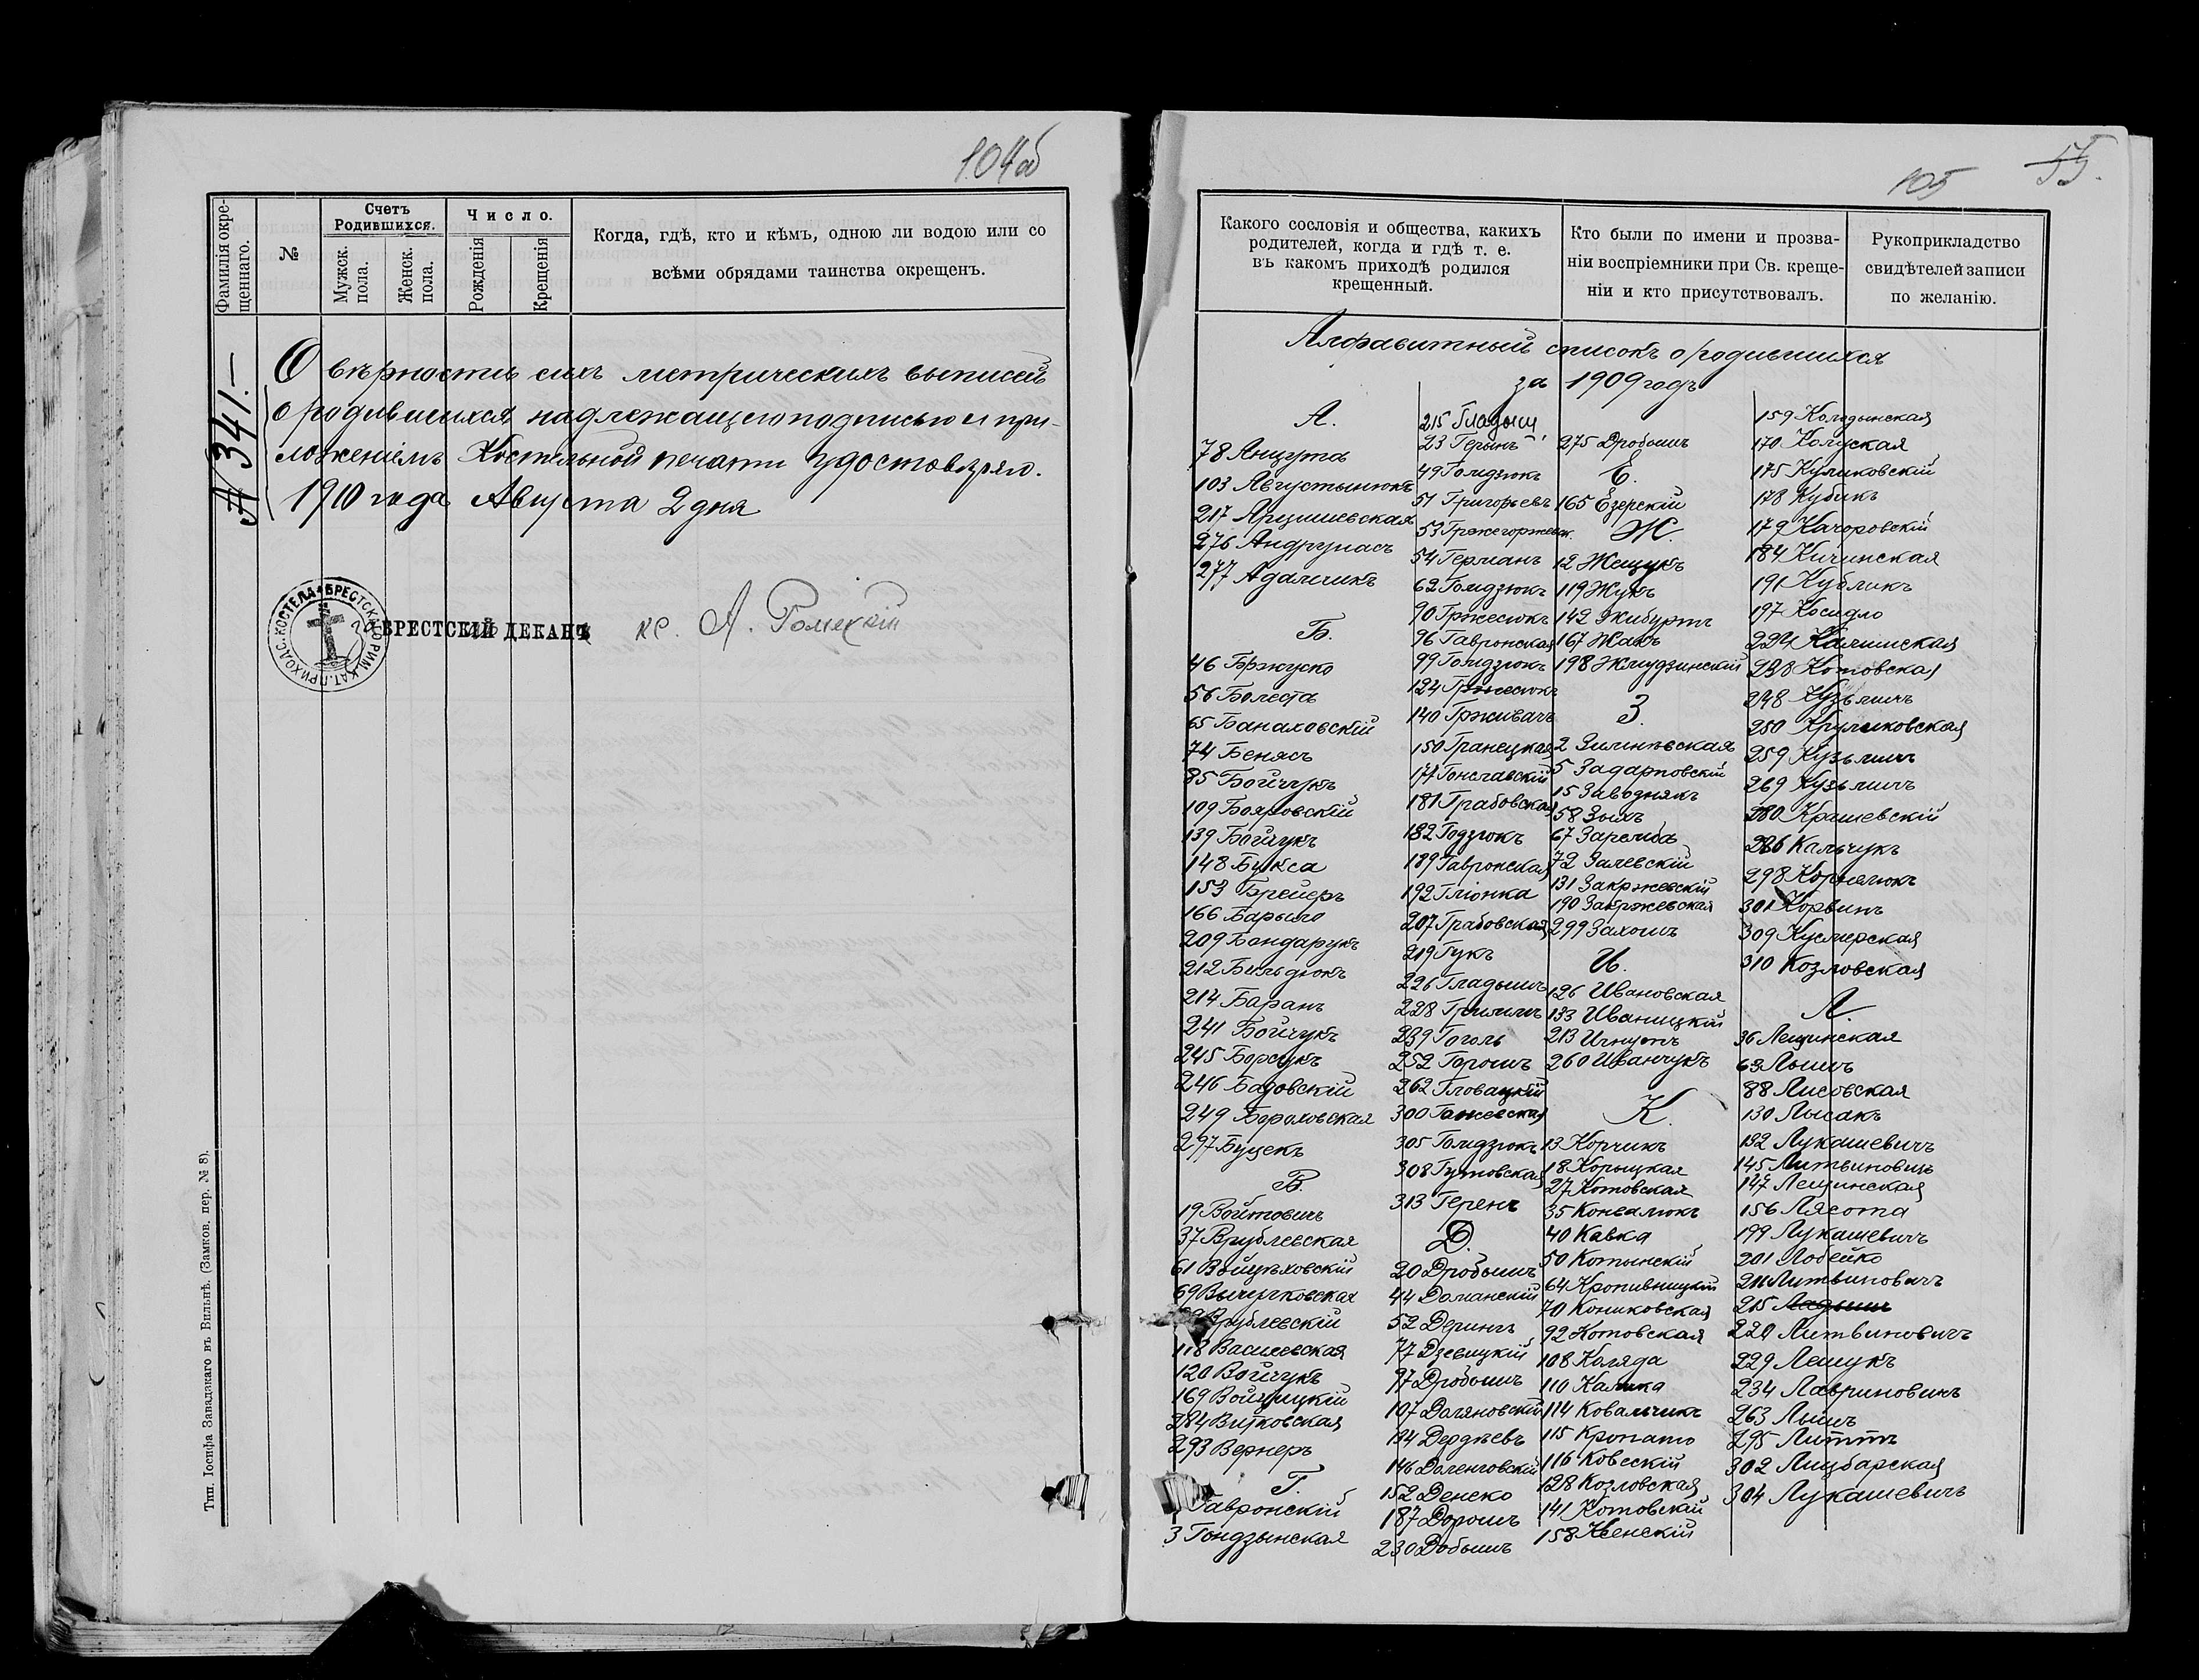 104об
Фамилія окре-
щеннаго.
№
Счетъ
Родившихся.
Мужск.
пола.
Женск.
пола.
Число.
Рожденія
Крещенія
Когда, гдѣ, кто и кѣмъ, одною ли водою или со
всѣми обрядами таинства окрещенъ.
№ 341.—
О вѣрности сихъ метрическихъ выписей
о родившихся надлежащею подписью и при-
ложеніемъ Костельной печати удостовѣряю.
1910 года Августа 2 дня
БРЕСТСКІЙ ДЕКАНЪ кс. А.
Тип. Іосифа Завадзкаго въ Вильнѣ. (Замков. пер. № 8).
105
55.
Какого сословія и общества, какихъ
родителей, когда и гдѣ т. е.
въ какомъ приходѣ родился
крещенный.
Кто были по имени и прозва-
ніи воспріемники при Св. креще-
ніи и кто присутствовалъ.
Рукоприкладство
свидѣтелей записи
по желанію.
Алфавитный списокъ о родившихся
за 1909 годъ
А.
78 Анцута
103 Августынюкъ
217 Арцишевская
276 Андрунасъ
277 Адамчикъ
Б.
46 Бржуско
56 Болеста
65 Банаховскій
74 Бенясъ
85 Бойчукъ
109 Бояровскій
139 Бойчукъ
148 Букса
153 Брейеръ
166 Барыло
209 Бондарукъ
212 Бильдюкъ
214 Баранъ
241 Бойчукъ
245 Борсукъ
246 Бадовскій
249 Бороховская
297 Буцекъ
В.
19 Войтовичъ
37 Врублевская
61 Войцѣховскій
69
Врублевскій
118 Василевская
120 Войчукъ
169 Войцицкій
284 Витковская
293 Вернеръ
Г.
Гавронскій
3 Гондзынская
215 Гладыш
23 Герынъ
49 Гомдзюкъ
51 Григорьевъ
53 Гржегоржевск.
54 Германъ
62 Гомдзюкъ
90 Гржесюкъ
96 Гавронская
99 Гомдзюкъ
124 Гржесюкъ
140 Грживачъ
150 Гранецкая
174
181 Грабовская
182 Годзюкъ
189 Гавронская
192 Гліонка
207 Грабовская
219 Гукъ
226 Гладышъ
228
239 Гоголь
252 Горошъ
262 Гловацкій
300
305 Гомдзюкъ
308 Гутовская
313 Геренъ
Д.
20 Дробышъ
44 Доманскій
52 Дерингъ
77 Дзевицкій
97 Дробышъ
107 Доляновскій
134 Дердѣевъ
146
152 Денеко
187 Дорошъ
230 Добышъ
275 Дробышъ
Е.
165 Езерскій
Ж.
12 Жещукъ
119 Жукъ
142 Жибуртъ
167
198 Жмудзинскій
З.
2
5 Задарновскій
15 Заводнякъ
58 Зыхъ
67 Заремба
72 Залевскій
131 Закржевскій
190 Закржевская
299 Захошъ
И.
126 Ивановская
133 Иваницкій
213
260 Иванчукъ
К.
13 Корчикъ
18 Корыцкая
27 Котовская
35 Ковалюкъ
40 Кавка
50 Котынскій
64 Кропивницкій
70 Кониковская
92 Котовская
108 Коляда
110 Калика
114 Ковальчикъ
115
116
128 Козловская
141 Котовскій
158 Ксенскій
159 Колодынская
170
175 Куликовскій
178 Кубикъ
179 Качоровскій
184 Кичинская
191 Кубликъ
197 Косидло
224 Калинская
238 Котовская
248 Кузьмичъ
250 Круликовская
259 Кузьмичъ
269 Кузьмичъ
280 Крашевскій
286 Кальчукъ
298
301 Корвинъ
309
310 Козловская
Л.
36 Лещинская
63 Лышъ
88 Лисовская
130 Лысакъ
132 Лукашевичъ
145 Литвиновичъ
147 Лещинская
156 Лясота
199 Лукашевичъ
201 Лобейко
211 Литвиновичъ
215 Ладышъ
220 Литвиновичъ
229 Лещукъ
234 Лавриновичъ
263 Лышъ
295 Литтъ
302 Лицбарская
304 Лукашевичъ